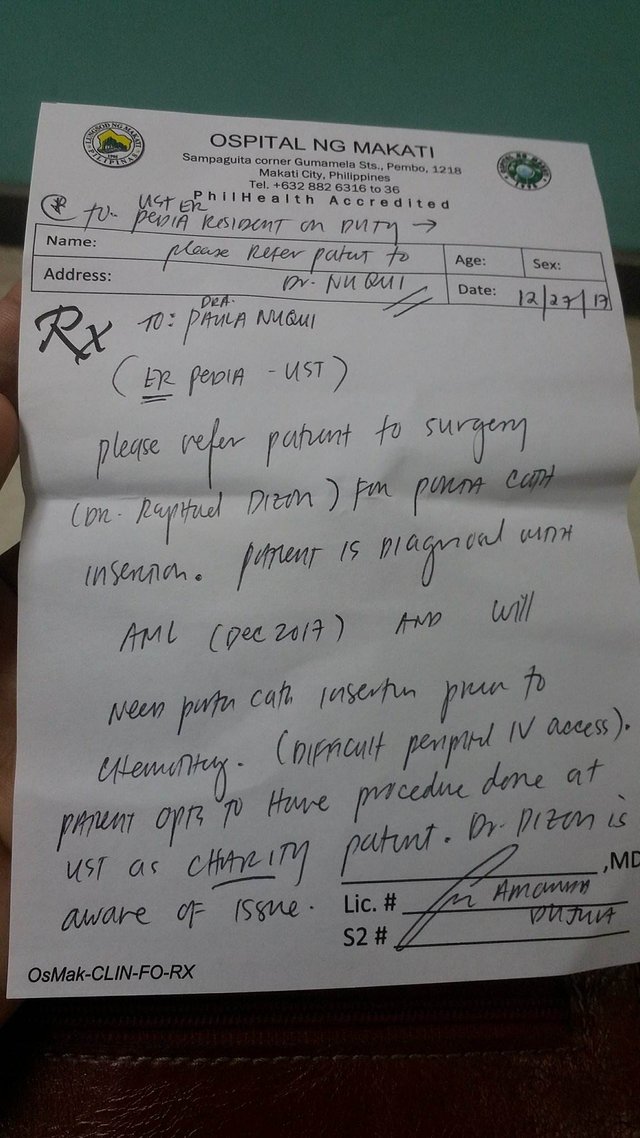 LUNGSOD NG MAKATI
PILIPINAS
OSPITAL NG MAKATI
Sampaguita corner Gumamela Sts., Pembo, 1218
Makati City, Philippines
Tel. +632 882 6316 to 36
PhilHealth Accredited
UST ER
TO- PEDIA RESIDENT ON DUTY →
Name: please Refer patient to Age: Sex:
Address: Dr. NUQUI Date: 12/27/17
Rx TO: DRA. PAULA NUQUI
(ER PEDIA - UST)
please refer patient to surgery
(DR. Raphael DIZON) For PORTA CATH
insertion. PATIENT IS DIAGNOSED WITH
AML (DEC 2017) AND will
Need porta cath insertion prior to
chemotherapy. (DIFFICULT peripheral IV access).
PATIENT OPTS TO HAVE procedure done at
UST as CHARITY patient. Dr. DIZON is
aware of issue. ,MD
Lic. # Amanda
S2 #
OsMak-CLIN-FO-RX